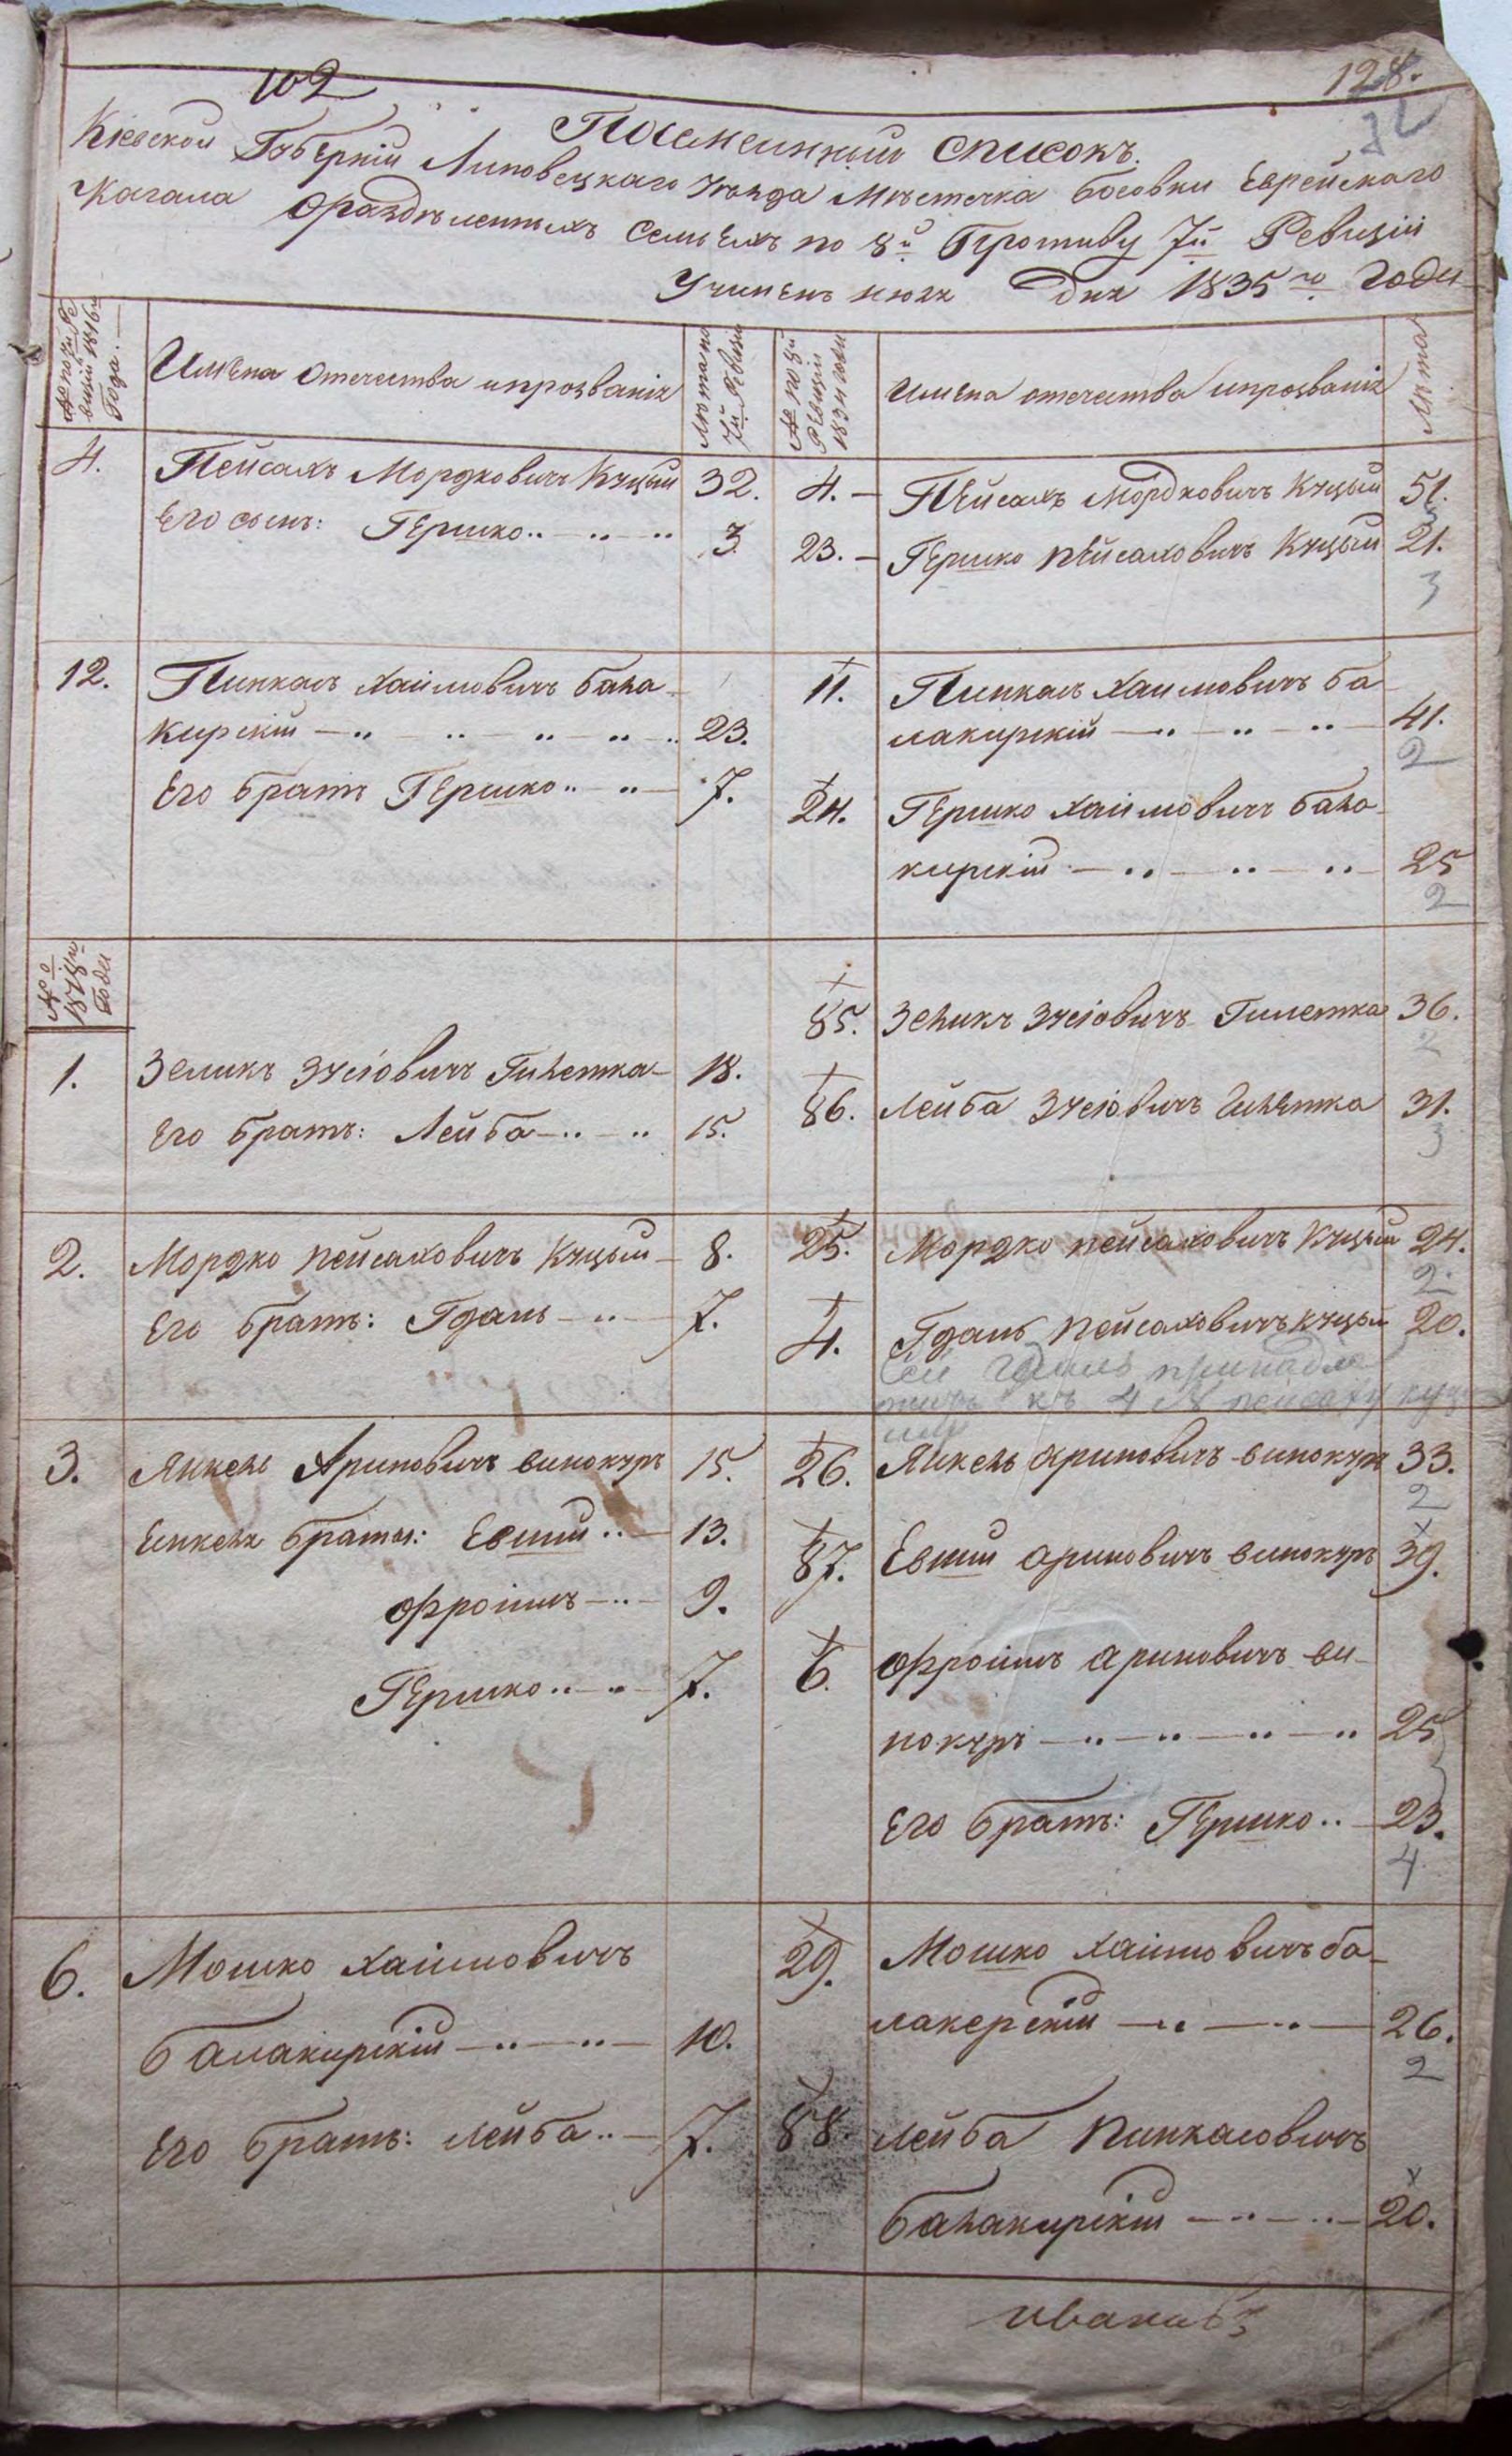 102
128.
Поименный списокъ.
Кіевской Губерніи Липовецкаго уѣзда Мѣстечка Босовки Еврейскаго
Кагала О раздѣленныхъ семьехъ по 8й Противу 7й Ревизіи
Учиненъ июля дня 1835го Года
№ по 7й Ревизіи 1816го Года.
Имена отечества и прозванія
Лѣта по 7й Ревизіи
№ по 8й Ревизіи 1834 года
Имена отечества и прозванія
Лѣта
4. Пейсахъ Мордковичъ Куцый 32. 4. Пейсахъ Мордковичъ Куцый 51.
Его сынъ: Гершко 3 23. Гершко Пейсаховичъ Куцый 21.
3
12. Пинкасъ Хаимовичъ бала- 11. Пинкасъ Хаимовичъ ба-
кирскій 23. лакирскій 41.
2
Его братъ Гершко 7. 24. Гершко Хаимовичъ бала-
кирскій 25
2
№ 1818го Года
85. Зеликъ Зусіовичъ Гилетка 36.
1. Зеликъ Зусіовичъ Гилетка 18.
86. Лейба Зусіовичъ Гилетка 31.
Его братъ: Лейба 15.
3
2. Мордко Пейсаховичъ Куцый 8. 25. Мордко Пейсаховичъ Куцый 24.
2
Его братъ: Гдаль 7. 4. Гдаль Пейсаховичъ Куцый 20.
Сей Гдаль принадле
житъ къ 4 № Пейсаху Куцо
му
3. Янкель Ариновичъ винокуръ 15. 26. Янкель Ариновичъ винокуръ 33.
2
Енкеля браты: Евшии 13. 87. Евшии Ариновичъ винокуръ 39.
Фроимъ 9. 6. Фроимъ Ариновичъ ви-
Гершко 7. нокуръ 25
Его братъ: Гершко 23.
4
6. Мошко Хаимовичъ 29. Мошко Хаимовичъ ба-
балакирскій 10. лакерскій 26.
2
Его братъ: Лейба 7. 88. Лейба Пинкасовичъ
балакирскій 20.